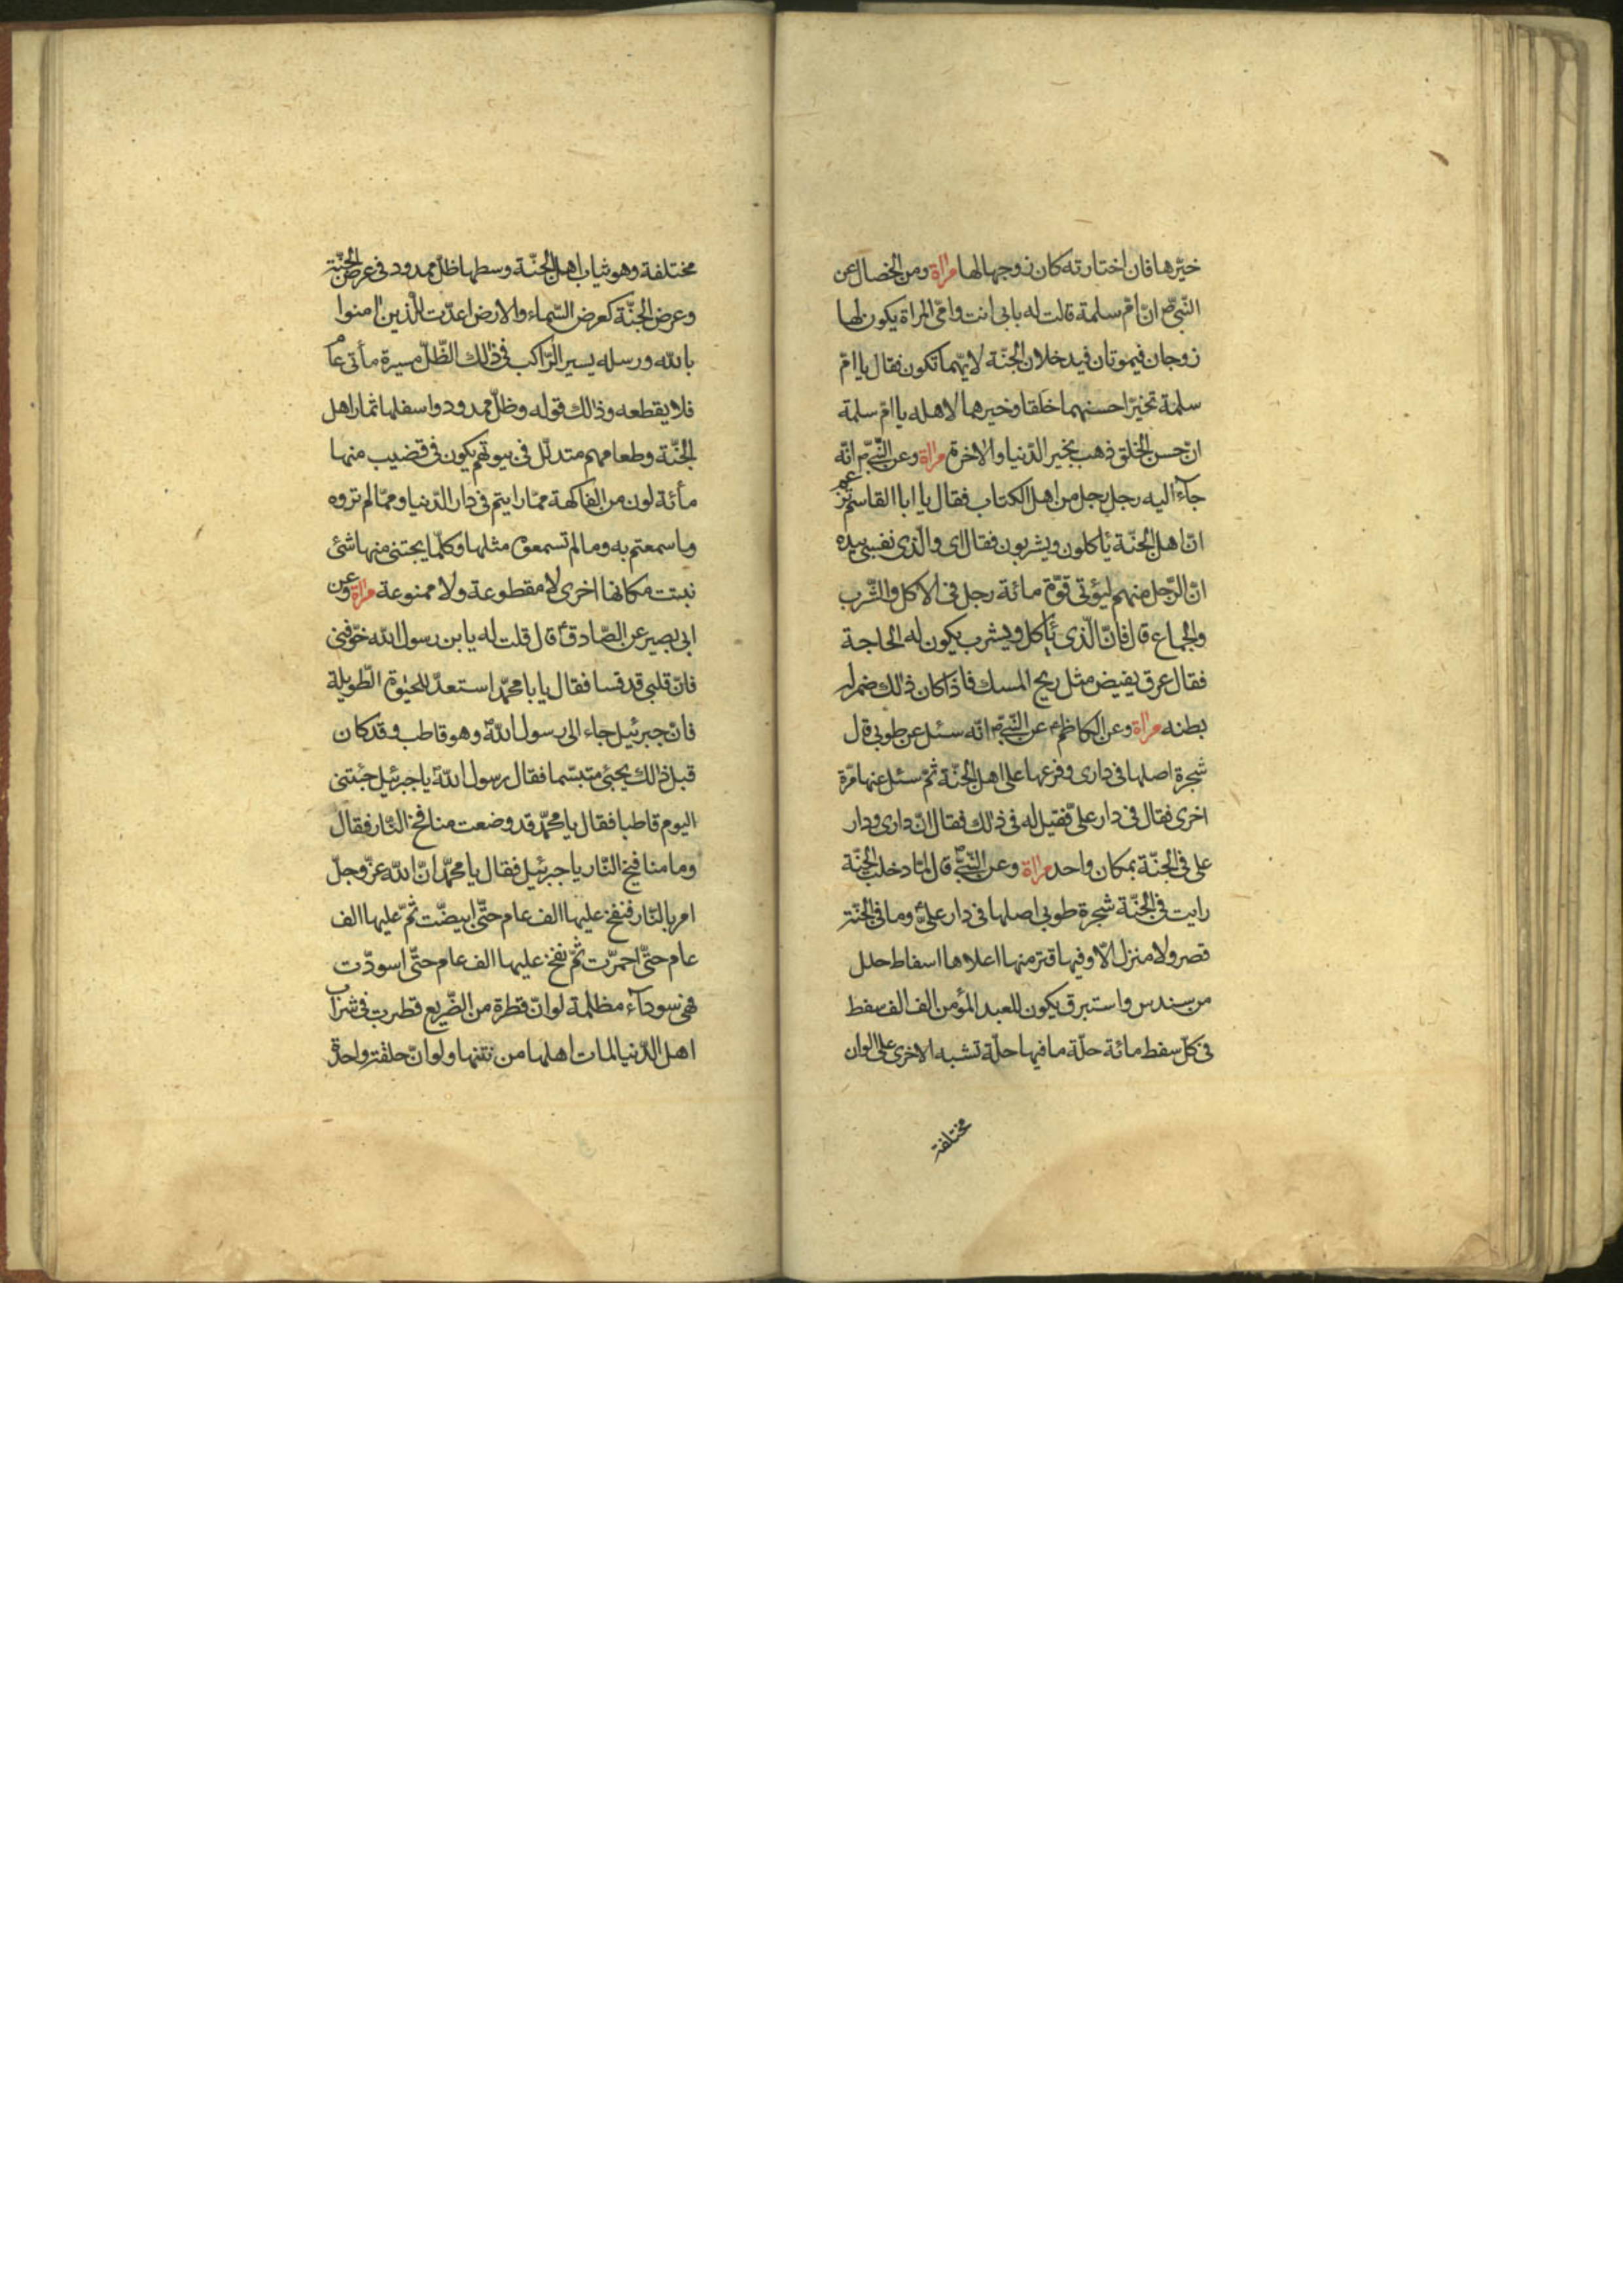 خيّرها فان اختارته كان زوجها لها مراة ومن الخصال عن
النّبىّ ص انّ امّ سلمة قالت له بابى انت وامّى المراة يكون لها
زوجان فيموتان فيدخلان الجنّة لايّهما تكون فقال يا امّ
سلمة تخيّر احسنهما خلقا وخيرهما لاهله يا امّ سلمة
انّ حسن الخلق ذهب بخير الدّنيا والاخرة مراة وعن النّبىّ ص انّه
جآء اليه رجل من اهل الكتاب فقال يا ابا القاسم تزعم
انّ اهل الجنّة ياكلون ويشربون فقال اى والّذى نفسى بيده
انّ الرّجل منهم ليؤتى قوّة مائة رجل فى الاكل والشّرب
والجماع قال فانّ الّذى ياكل ويشرب يكون له الحاجة
فقال عرق يفيض مثل ريح المسك فاذا كان ذلك ضمر له
بطنه مراة وعن الكاظم ع عن النّبىّ ص انّه سئل عن طوبى قال
شجرة اصلها فى دارى وفرعها على اهل الجنّة ثمّ سئل عنها مرّة
اخرى فقال فى دار علىّ فقيل له فى ذلك فقال انّ دارى ودار
على فى الجنّة بمكان واحد مراة وعن النّبىّ ص قال لمّا دخلت الجنّة
رايت فى الجنّة شجرة طوبى اصلها فى دار علىّ ع وما فى الجنّة
قصر ولا منزل الّا وفيها قتر منها اعلاها اسفاط حلل
من سندس واستبرق يكون للعبد المؤمن الف الف سفط
فى كلّ سفط مائة حلّة ما فيها حلّة تشبه الاخرى على الوان
مختلفة
مختلفة وهو ثياب اهل الجنّة وسطها ظلّ ممدود فى عرض الجنّة
وعرض الجنّة كعرض السّماء والارض اعدّت للّذين امنوا
بالله ورسله يسير الرّاكب فى ذلك الظّلّ مسيرة مأتى عام
فلا يقطعه وذلك قوله وظلّ ممدود واسفلها ثمار اهل
الجنّة وطعامهم متدلّل فى بيوتهم يكون فى قضيب منها
مأئة لون من الفاكهة ممّا رايتم فى دار الدّنيا وممّا لم تروه
وما سمعتم به وما لم تسمعوه مثلها وكلّما يجتنى منها شئ
نبتت مكانها اخرى لا مقطوعة ولا ممنوعة مراة وعن
ابى بصير عن الصّادق ع قال قلت له يابن رسول الله خوّفنى
فانّ قلبى قد قسا فقال يا با محمّد استعدّ للحيوة الطّويلة
فانّ جبرئيل جاء الى رسول الله ص وهو قاطب وقد كان
قبل ذلك يجيئ متبسّما فقال رسول الله ص يا جبرئيل جئتنى
اليوم قاطبا فقال يا محمّد قد وضعت منافخ النّار فقال
وما منافيخ النّار يا جبرئيل فقال يا محمّد انّ الله عزّ وجلّ
امر بالنّار فنفخ عليها الف عام حتّى ابيضّت ثمّ عليها الف
عام حتّى احمرّت ثمّ نفخ عليها الف عام حتّى اسودّت
فهى سودآء مظلمة لو انّ قطرة من الضّريع قطرت فى شراب
اهل الدّنيا لمات اهلها من نتنها ولو انّ حلقة واحدة